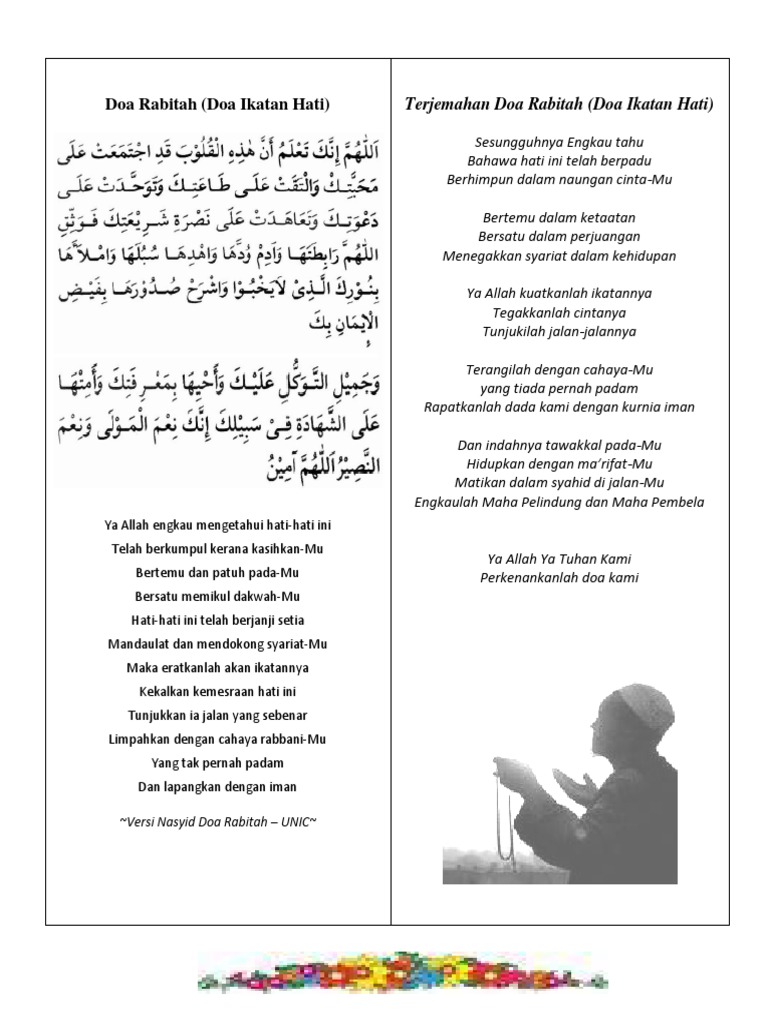 Doa Rabitah (Doa Ikatan Hati)
اَللّٰهُمَّ اِنَّكَ تَعْلَمُ أَنَّ هٰذِهِ الْقُلُوْبَ قَدِ اجْتَمَعَتْ عَلَى
مَحَبَّتِكْ وَالْتَقَتْ عَلَى طَاعَتِكَ وَتَوَحَّدَتْ عَلَى
دَعْوَتِكَ وَتَعَاهَدَتْ عَلَى نَصْرَةِ شَرِيْعَتِكَ فَوَثِّقِ
اللّٰهُمَّ رَابِطَتَهَا وَاَدِمْ وُدَّهَا وَاهْدِهَا سُبُلَهَا وَامْلَأَهَا
بِنُوْرِكَ الَّذِىْ لَايَخْبُوْا وَاشْرَحْ صُدُوْرَهَا بِفَيْضِ
الْاِيْمَانِ بِكَ
وَجَمِيْلِ التَّوَكُّلِ عَلَيْكَ وَأَحْيِهَا بِمَعْرِفَتِكَ وَأَمِتْهَا
عَلَى الشَّهَادَةِ فِىْ سَبِيْلِكَ اِنَّكَ نِعْمَ الْمَوْلَى وَنِعْمَ
النَّصِيْرُ اَللّٰهُمَّ اٰمِيْنُ
Ya Allah engkau mengetahui hati-hati ini
Telah berkumpul kerana kasihkan-Mu
Bertemu dan patuh pada-Mu
Bersatu memikul dakwah-Mu
Hati-hati ini telah berjanji setia
Mandaulat dan mendokong syariat-Mu
Maka eratkanlah akan ikatannya
Kekalkan kemesraan hati ini
Tunjukkan ia jalan yang sebenar
Limpahkan dengan cahaya rabbani-Mu
Yang tak pernah padam
Dan lapangkan dengan iman
~Versi Nasyid Doa Rabitah – UNIC~
Terjemahan Doa Rabitah (Doa Ikatan Hati)
Sesungguhnya Engkau tahu
Bahawa hati ini telah berpadu
Berhimpun dalam naungan cinta-Mu
Bertemu dalam ketaatan
Bersatu dalam perjuangan
Menegakkan syariat dalam kehidupan
Ya Allah kuatkanlah ikatannya
Tegakkanlah cintanya
Tunjukilah jalan-jalannya
Terangilah dengan cahaya-Mu
yang tiada pernah padam
Rapatkanlah dada kami dengan kurnia iman
Dan indahnya tawakkal pada-Mu
Hidupkan dengan ma’rifat-Mu
Matikan dalam syahid di jalan-Mu
Engkaulah Maha Pelindung dan Maha Pembela
Ya Allah Ya Tuhan Kami
Perkenankanlah doa kami